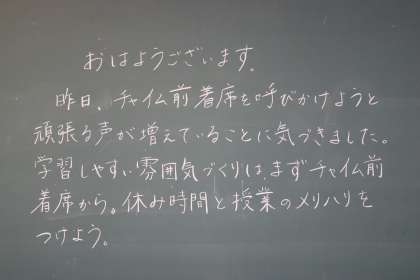 おはようございます。
昨日、チャイム前着席を呼びかけようと
頑張る声が増えていることに気づきました。
学習しやすい雰囲気づくりは、まずチャイム前
着席から。休み時間と授業のメリハリを
つけよう。